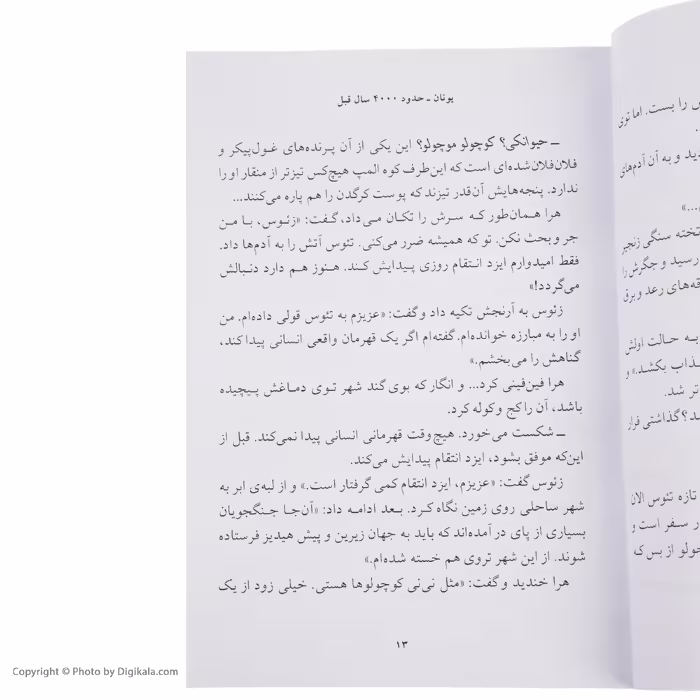 یونان ـ حدود ۴۰۰۰ سال قبل
ـ حیوانکی؟ کوچولو موچولو؟ این یکی از آن پرنده‌های غول‌پیکر و
فلان‌فلان‌شده‌ای است که این‌طرف کوه المپ هیچ‌کس تیزتر از منقار او را
ندارد. پنجه‌هایش آن‌قدر تیزند که پوست کرگدن را هم پاره می‌کنند...
هرا همان‌طور که سرش را تکان می‌داد، گفت: «زئوس، با من
جر و بحث نکن. تو که همیشه ضرر می‌کنی. تئوس آتش را به آدم‌ها داد.
فقط امیدوارم ایزد انتقام روزی پیدایش کند. هنوز هم دارد دنبالش
می‌گردد!»
زئوس به آرنجش تکیه داد و گفت: «عزیزم به تئوس قولی داده‌ام. من
او را به مبارزه خوانده‌ام. گفته‌ام اگر یک قهرمان واقعی انسانی پیدا کند،
گناهش را می‌بخشم.»
هرا فین‌فینی کرد... و انگار که بوی گند شهر توی دماغش پیچیده
باشد، آن را کج و کوله کرد.
ـ شکست می‌خورد. هیچ‌وقت قهرمانی انسانی پیدا نمی‌کند. قبل از
این‌که موفق بشود، ایزد انتقام پیدایش می‌کند.
زئوس گفت: «عزیزم، ایزد انتقام کمی گرفتار است.» و از لبه‌ی ابر به
شهر ساحلی روی زمین نگاه کرد. بعد ادامه داد: «آن‌جا جنگجویان
بسیاری از پای در آمده‌اند که باید به جهان زیرین و پیش هیدیز فرستاده
شوند. از این شهر تروی هم خسته شده‌ام.»
هرا خندید و گفت: «مثل نی‌نی کوچولوها هستی. خیلی زود از یک
۱۳
را بست. اما توی
و به آن آدم‌های
...»
تخته سنگی زنجیر
رسید و جگرش را
رعد و برق
به حالت اولش
بکشد.» و
تر شد.
گذاشتی فرار
تازه تئوس الان
سفر است و
از بس که
Copyright © Photo by Digikala.com